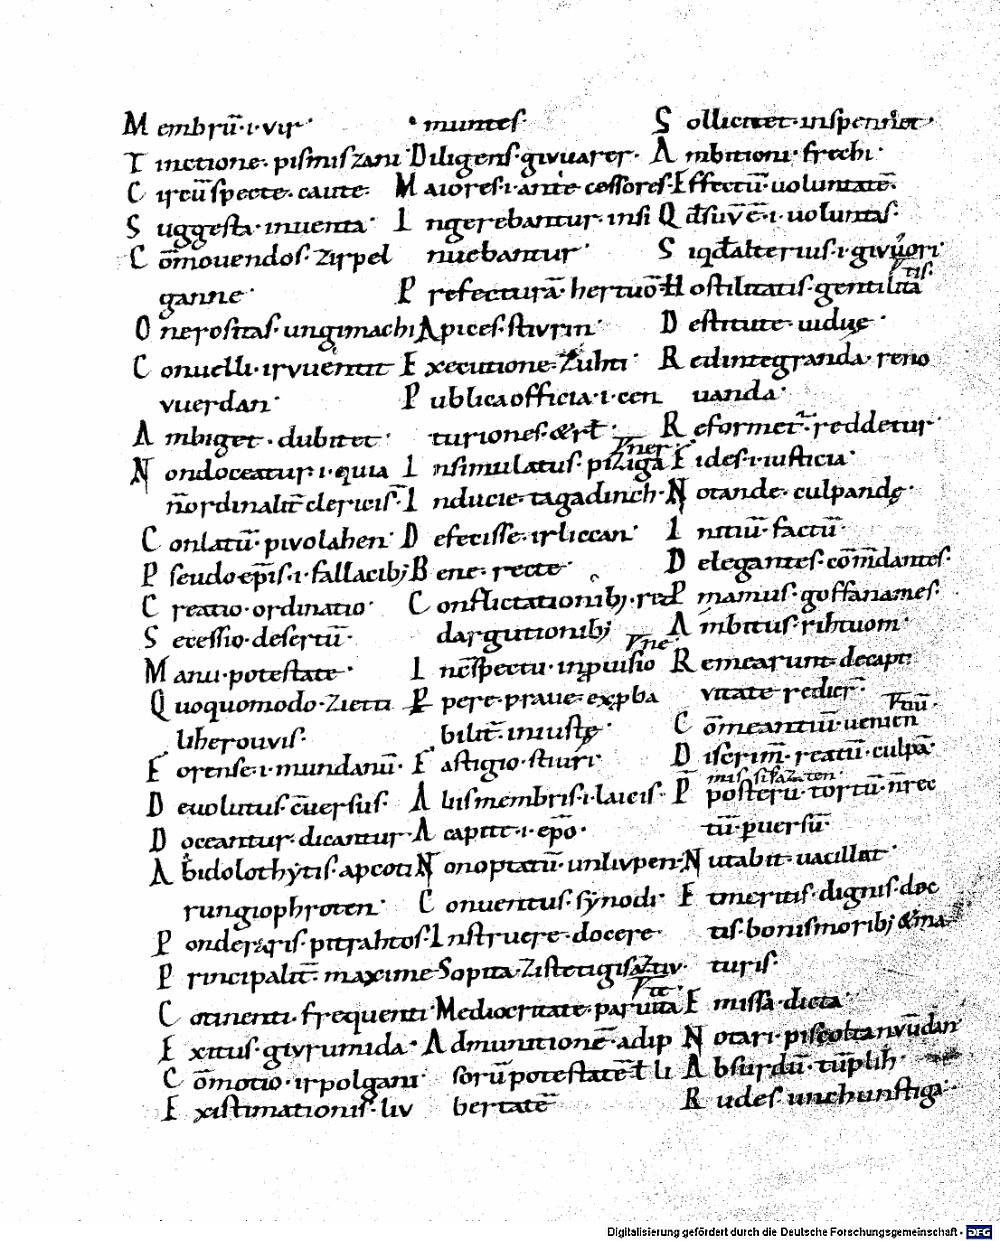 Membrū·i·vir·
Tinctione· pismiszani
Circūspecte· caute·
Suggesta· inuenta·
Cōmouendos· zirpel
ganne·
Onerositas· ungimachi
Conuelli· iruuentit
vuerdan·
Ambiget· dubitet·
Non doceatur· i· quia
n̄ ordinalit̄ clericis·
Conlatū· pivolahen·
Pseudoep̄is· i· fallacib;
Creatio· ordinatio·
Secessio· desertū·
Manu· potestate·
Quoquomodo· zietti
liherouvis·
Forense· i· mundanū·
Deuolutus· cūersus·
Doceantur· dicantur·
Abidolothẏtis· apcoti
rungiophroten·
Ponderaris· pitrahtos·
Principalit̄· maxime·
Cōtinenti· frequenti·
Exitus· givrumida·
Cōmotio· irpolgani·
Existimationis· liv
muntes·
Diligens· givuarer·
Maiores· i· ante cessores·
Ingerebantur· insi
nuebantur·
Prefecturā· hertuō
Apices· stivrin·
Executione· zuhti·
Publica officia· i· cen
turiones·
Insimulatus· piziga
vner·
Inducie· tagadinch·
Defecisse· irliccan·
Bene· recte·
Conflictationib;· red
dargutionib;
vne·
Inc̄spectu· inpiuisio
Ppere· praue·
bilit̄· iniustę·
Fastigio· stiuri·
Aliis membris· i· laicis·
A capite· i· ep̄o·
Non optatū· unlivpen·
Conuentus· sẏnodi·
Instruere· docere·
Sopita·
Mediocritate· paruita
Admunitionē· adip
sorū potestatē
bertatē
Sollicitet· inspenit̄et·
Ambitioni· frechi·
Effectū· uoluntatē·
Qd̄ suv̄ē· i· uoluntas·
Siqd̄ alterius· i· givuori
tis·
Hostilitatis· gentilita
Destitute· uidue·
Redintegranda· reno
uanda·
Reformet̄· reddetur·
Fides· i· iusticia·
Notande· culpandę·
Initiū· factū·
Delegantes· cōm̄dantes·
Pmamus· goffanames·
Ambitus· rihtuom·
Remearunt· decapt
vitate redier̄·
Cōmeantiū· uenien
tiū·
Discrim̄· reatū· culpā·
posterū· tortū· n̄rec
tū· puersū·
Nutabit· uacillat·
Emeritis· dignis· doc
tis· bonis morib;
turis·
Emissa· dicta·
Notari·
Absurdū·
Rudes· unchunstiga·
Digitalisierung gefördert durch die Deutsche Forschungsgemeinschaft - DFG